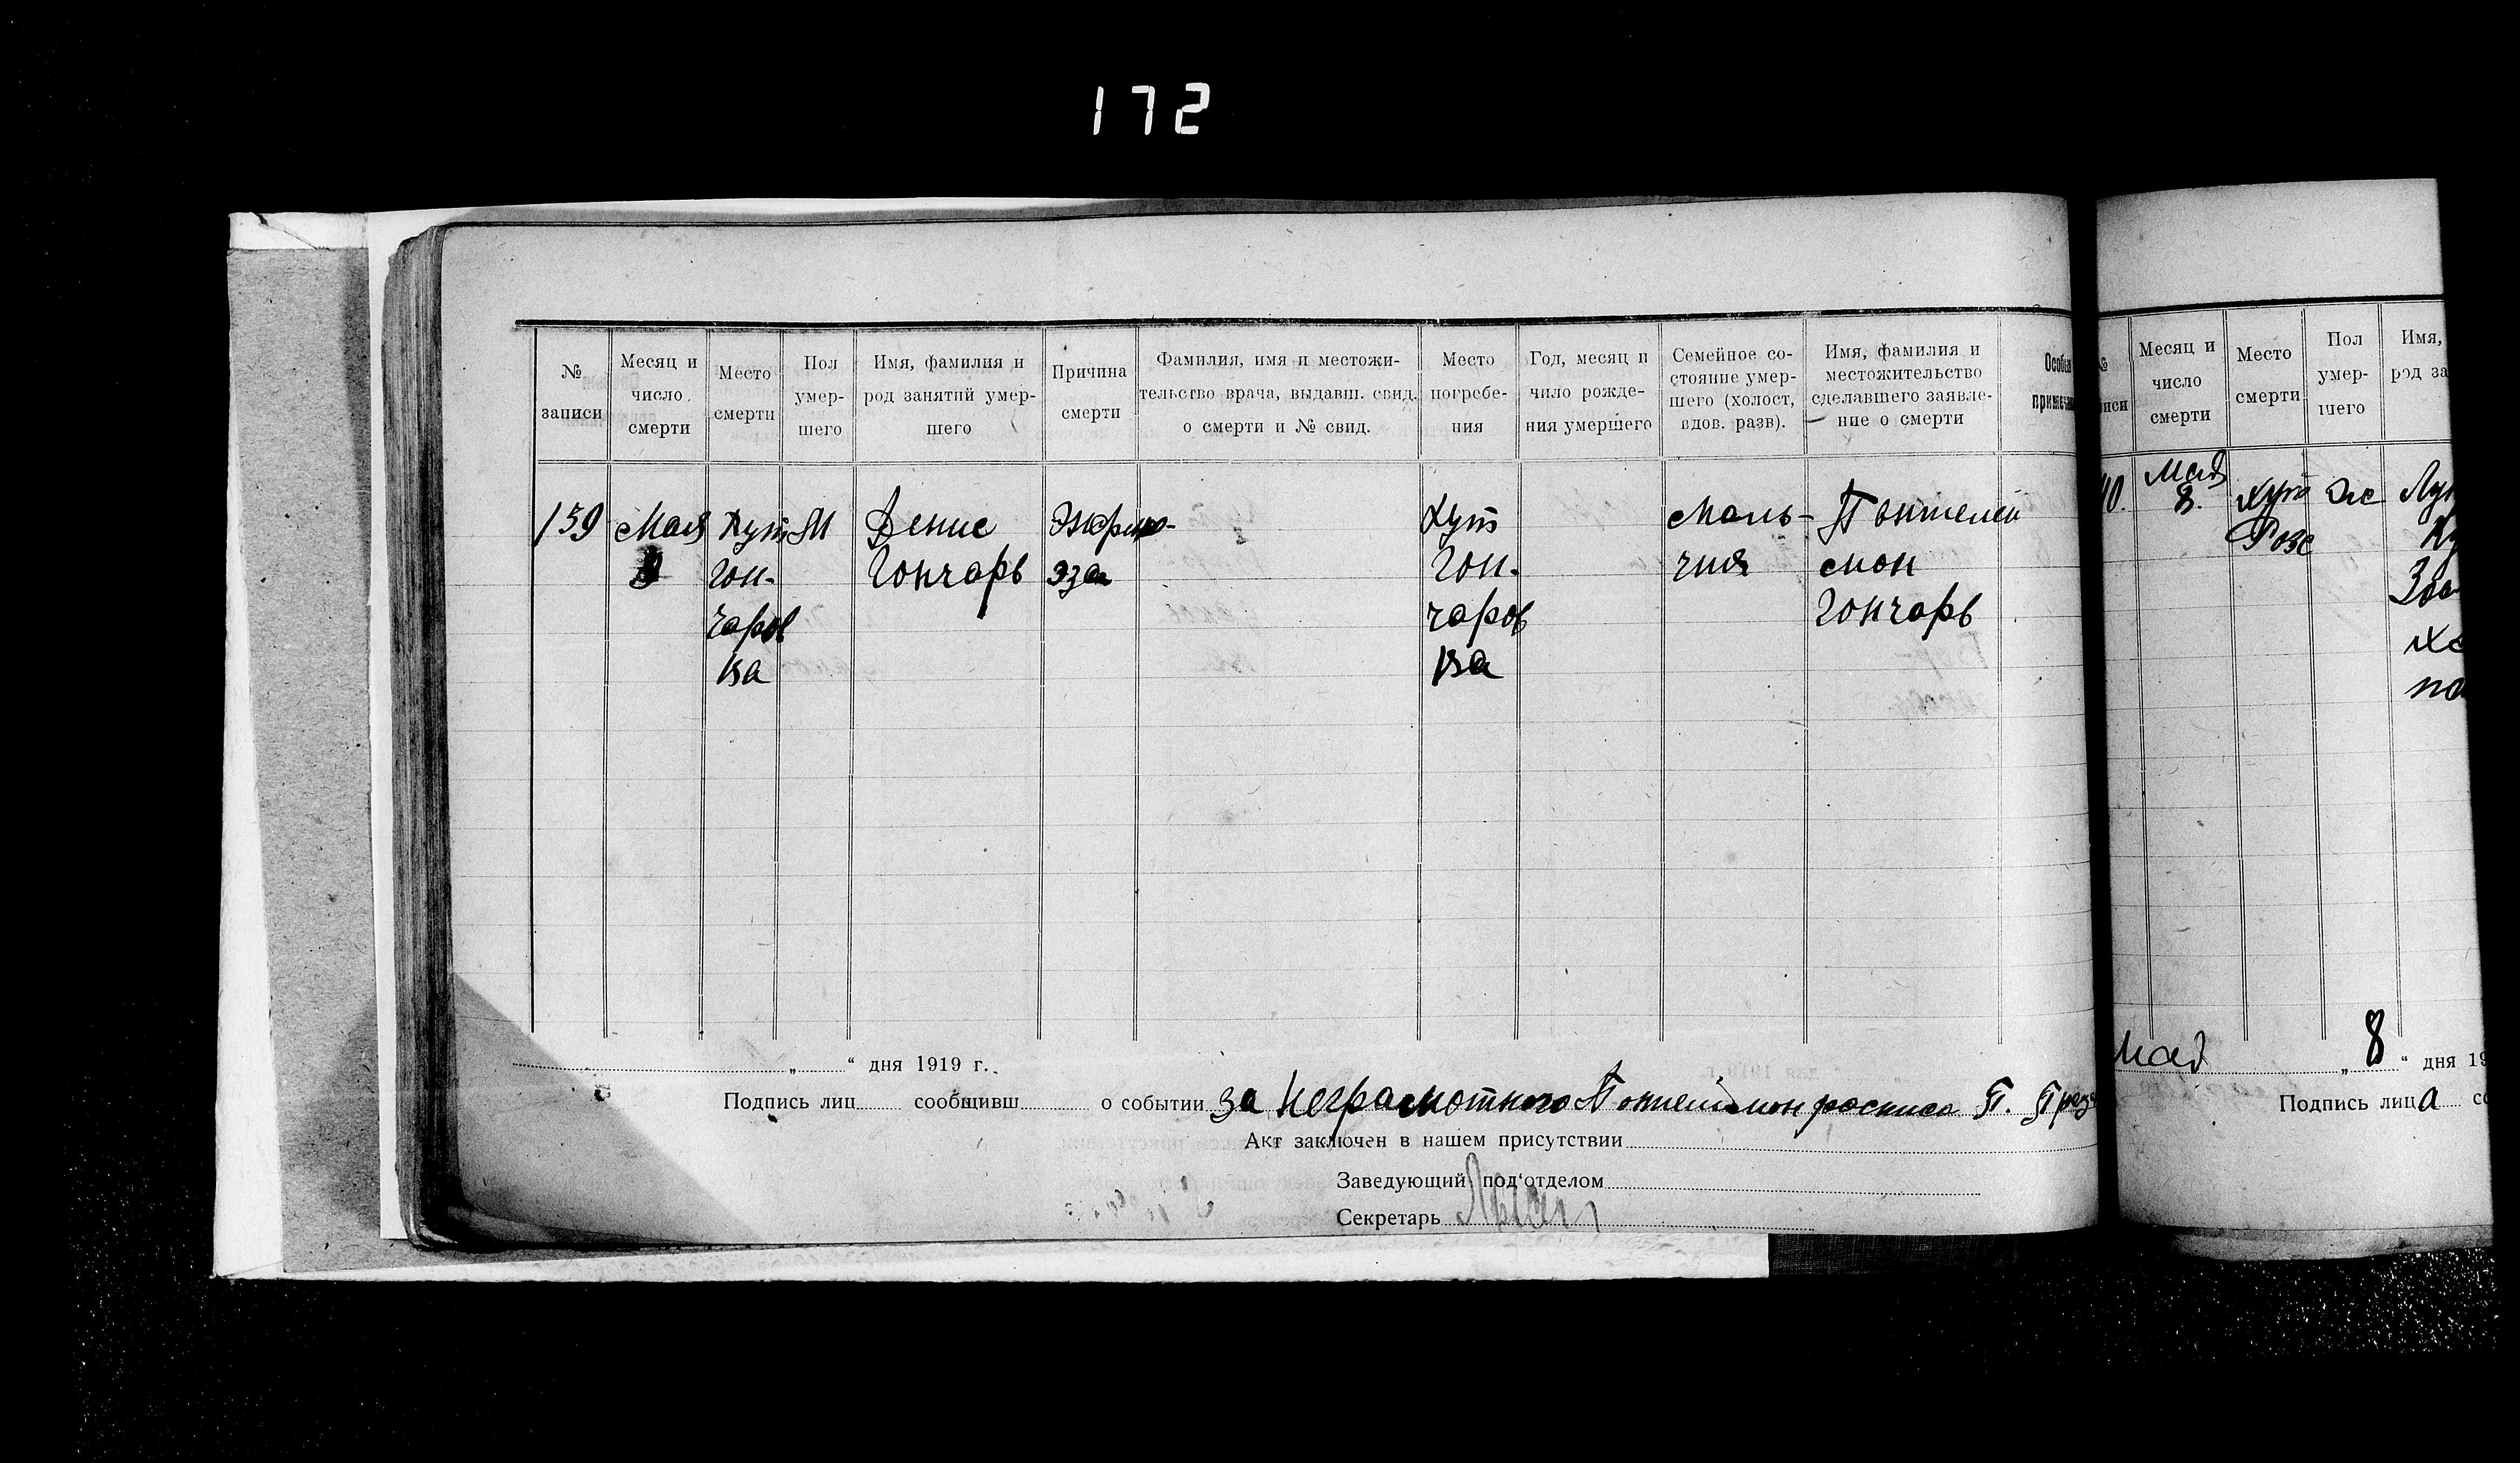 172
№ записи
Месяц и число смерти
Место смерти
Пол умер-шего
Имя, фамилия и род занятий умер-шего
Причина смерти
Фамилия, имя и местожи-тельство врача, выдавш. свид. о смерти и № свид.
Место погребе-ния
Год, месяц и чило рожде-ния умершего
Семейное со-стояние умер-шего (холост, вдов. разв).
Имя, фамилия и местожительство сделавшего заявле-ние о смерти
Особыя
159
Мая
Хут
Гон-
чаров
ка
М
Денис
Гончарь
Хут
Гон-
чаров
ка
Маль-
чик
Понтелей
мон
Гончарь
„ “ дня 1919 г.
Подпись лиц сообщивш о событии за неграмотного Понтелимон росписа П.
Акт заключен в нашем присутствии
Заведующий под'отделом
Секретарь
Месяц и число смерти
Место смерти
Пол умер-шего
Имя,
род за
Мая
8.
хут
Розе
Мая „ 8 “ дня 19
Подпись лица